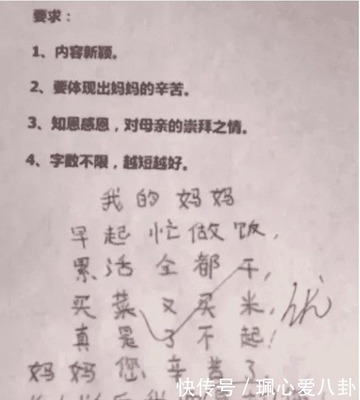 要求：
1、内容新颖。
2、要体现出妈妈的辛苦。
3、知恩感恩，对母亲的崇拜之情。
4、字数不限，越短越好。
我的妈妈
早起忙做饭，
累活全都干，
买菜又买米，
真是了不起！
优
妈妈您辛苦了，
快传号／珮心爱八卦